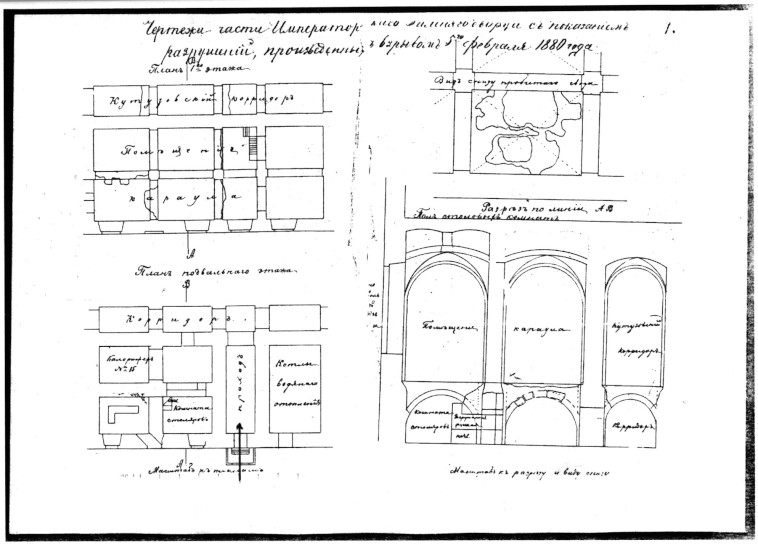 Чертежи части Император скаго Зимняго дворца съ показаніемъ
разрушеній, произведенных ъ взрывомъ 5го февраля 1880 года
1.
Планъ 1го этажа
Кутузовскій корридоръ
Помѣщеніе
караула
А
Планъ подвальнаго этажа
В
Корридоръ.
Калориферъ
№ 15
Комната
столяровъ
проходъ
Котлы
водяного
отопленія
А
Масштабъ къ планамъ
Видъ снизу пробитаго свода
Разрѣзъ по линіи АВ
Полъ столовыхъ комнатъ
Помѣщеніе
караула
Кутузовскій
корридоръ
Комната
столяровъ
печь
Корридоръ
Масштабъ къ разрѣзу и виду снизу